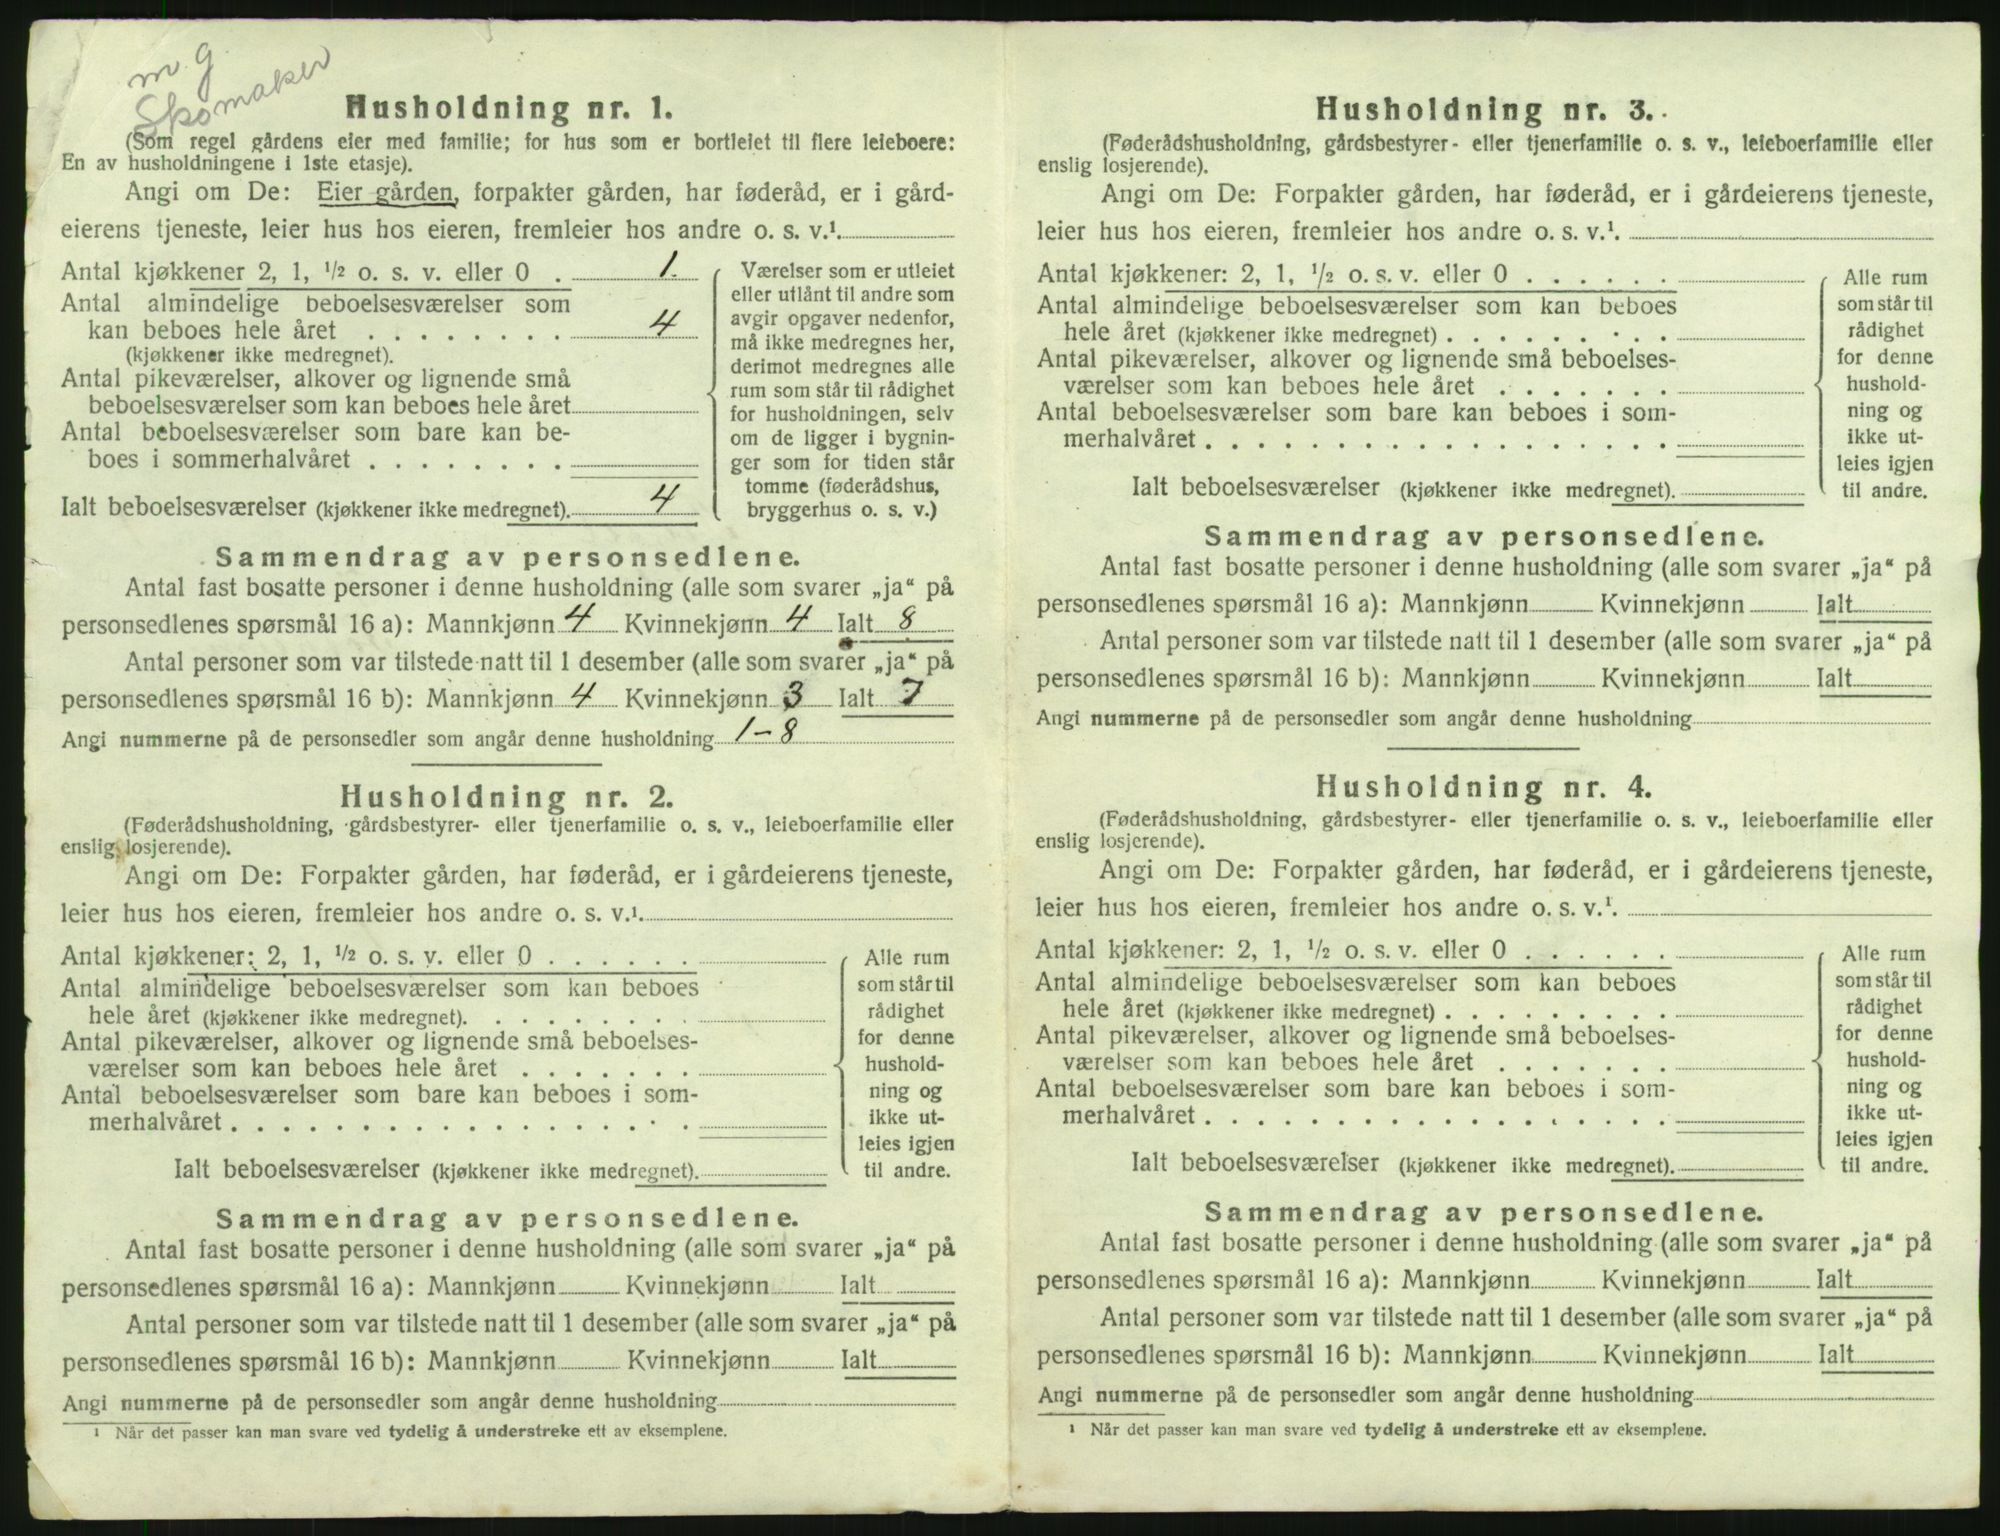 m g
Skomaker
Husholdning nr. 1.
(Som regel gårdens eier med familie; for hus som er bortleiet til flere leieboere:
En av husholdningene i 1ste etasje).
Angi om De: Eier gården, forpakter gården, har føderåd, er i gård-
eierens tjeneste, leier hus hos eieren, fremleier hos andre o. s. v.¹.
Antal kjøkkener 2, 1, ½ o. s. v. eller 0 . 1.
Antal almindelige beboelsesværelser som
kan beboes hele året . . . . . . . . 4
(kjøkkener ikke medregnet).
Antal pikeværelser, alkover og lignende små
beboelsesværelser som kan beboes hele året
Antal beboelsesværelser som bare kan be-
boes i sommerhalvåret . . . . . . . .
Ialt beboelsesværelser (kjøkkener ikke medregnet). 4
Værelser som er utleiet
eller utlånt til andre som
avgir opgaver nedenfor,
må ikke medregnes her,
derimot medregnes alle
rum som står til rådighet
for husholdningen, selv
om de ligger i bygnin-
ger som for tiden står
tomme (føderådshus,
bryggerhus o. s. v.)
Sammendrag av personsedlene.
Antal fast bosatte personer i denne husholdning (alle som svarer „ja“ på
personsedlenes spørsmål 16 a): Mannkjønn 4 Kvinnekjønn 4 Ialt 8
Antal personer som var tilstede natt til 1 desember (alle som svarer „ja“ på
personsedlenes spørsmål 16 b): Mannkjønn 4 Kvinnekjønn 3 Ialt 7
Angi nummerne på de personsedler som angår denne husholdning 1-8
Husholdning nr. 2.
(Føderådshusholdning, gårdsbestyrer- eller tjenerfamilie o. s. v., leieboerfamilie eller
enslig losjerende).
Angi om De: Forpakter gården, har føderåd, er i gårdeierens tjeneste,
leier hus hos eieren, fremleier hos andre o. s. v.¹.
Antal kjøkkener: 2, 1, ½ o. s. v. eller 0 . . . . . .
Antal almindelige beboelsesværelser som kan beboes
hele året (kjøkkener ikke medregnet). . . . . . . . .
Antal pikeværelser, alkover og lignende små beboelses-
værelser som kan beboes hele året . . . . . . .
Antal beboelsesværelser som bare kan beboes i som-
merhalvåret . . . . . . . . . . . . . . . . . .
Ialt beboelsesværelser (kjøkkener ikke medregnet).
Alle rum
som står til
rådighet
for denne
hushold-
ning og
ikke ut-
leies igjen
til andre.
Sammendrag av personsedlene.
Antal fast bosatte personer i denne husholdning (alle som svarer „ja“ på
personsedlenes spørsmål 16 a): Mannkjønn Kvinnekjønn Ialt
Antal personer som var tilstede natt til 1 desember (alle som svarer „ja“ på
personsedlenes spørsmål 16 b): Mannkjønn Kvinnekjønn Ialt
Angi nummerne på de personsedler som angår denne husholdning
¹ Når det passer kan man svare ved tydelig å understreke ett av eksemplene.
Husholdning nr. 3.
(Føderådshusholdning, gårdsbestyrer- eller tjenerfamilie o. s. v., leieboerfamilie eller
enslig losjerende).
Angi om De: Forpakter gården, har føderåd, er i gårdeierens tjeneste,
leier hus hos eieren, fremleier hos andre o. s. v.¹.
Antal kjøkkener: 2, 1, ½ o. s. v. eller 0 . . . . . .
Antal almindelige beboelsesværelser som kan beboes
hele året (kjøkkener ikke medregnet) . . . . . . . . .
Antal pikeværelser, alkover og lignende små beboelses-
værelser som kan beboes hele året . . . . . . .
Antal beboelsesværelser som bare kan beboes i som-
merhalvåret . . . . . . . . . . . . . . . . . .
Ialt beboelsesværelser (kjøkkener ikke medregnet).
Alle rum
som står til
rådighet
for denne
hushold-
ning og
ikke ut-
leies igjen
til andre.
Sammendrag av personsedlene.
Antal fast bosatte personer i denne husholdning (alle som svarer „ja“ på
personsedlenes spørsmål 16 a): Mannkjønn Kvinnekjønn Ialt
Antal personer som var tilstede natt til 1 desember (alle som svarer „ja“ på
personsedlenes spørsmål 16 b): Mannkjønn Kvinnekjønn Ialt
Angi nummerne på de personsedler som angår denne husholdning
Husholdning nr. 4.
(Føderådshusholdning, gårdsbestyrer- eller tjenerfamilie o. s. v., leieboerfamilie eller
enslig losjerende).
Angi om De: Forpakter gården, har føderåd, er i gårdeierens tjeneste,
leier hus hos eieren, fremleier hos andre o. s. v.¹.
Antal kjøkkener: 2, 1, ½ o. s. v. eller 0 . . . . . .
Antal almindelige beboelsesværelser som kan beboes
hele året (kjøkkener ikke medregnet) . . . . . . . . .
Antal pikeværelser, alkover og lignende små beboelses-
værelser som kan beboes hele året . . . . . . .
Antal beboelsesværelser som bare kan beboes i som-
merhalvåret . . . . . . . . . . . . . . . . . .
Ialt beboelsesværelser (kjøkkener ikke medregnet).
Alle rum
som står til
rådighet
for denne
hushold-
ning og
ikke ut-
leies igjen
til andre.
Sammendrag av personsedlene.
Antal fast bosatte personer i denne husholdning (alle som svarer „ja“ på
personsedlenes spørsmål 16 a): Mannkjønn Kvinnekjønn Ialt
Antal personer som var tilstede natt til 1 desember (alle som svarer „ja“ på
personsedlenes spørsmål 16 b): Mannkjønn Kvinnekjønn Ialt
Angi nummerne på de personsedler som angår denne husholdning
¹ Når det passer kan man svare ved tydelig å understreke ett av eksemplene.